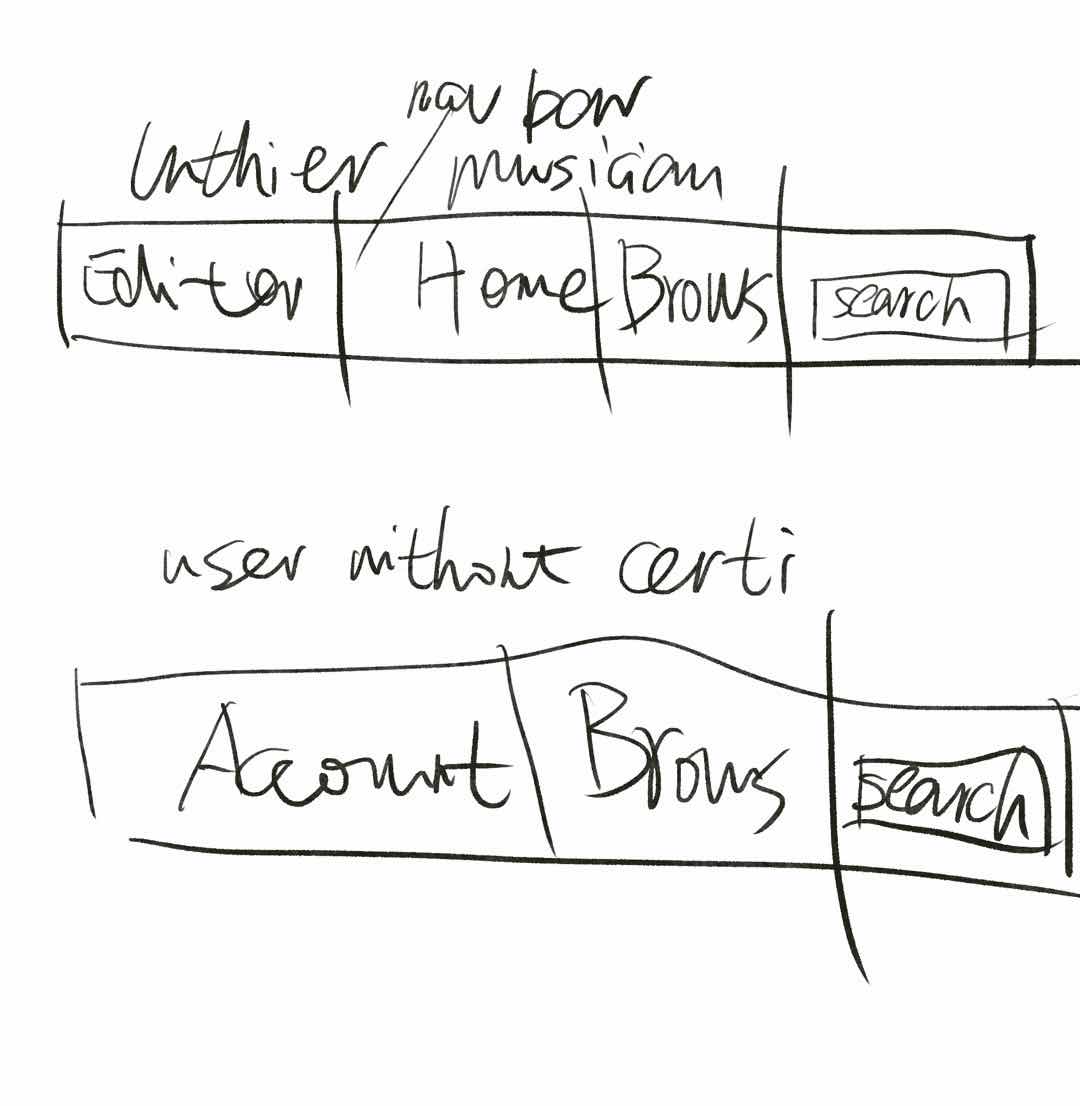 nav bar
Luthier musician
Editor Home Brows search
user without certi
Account Brows search